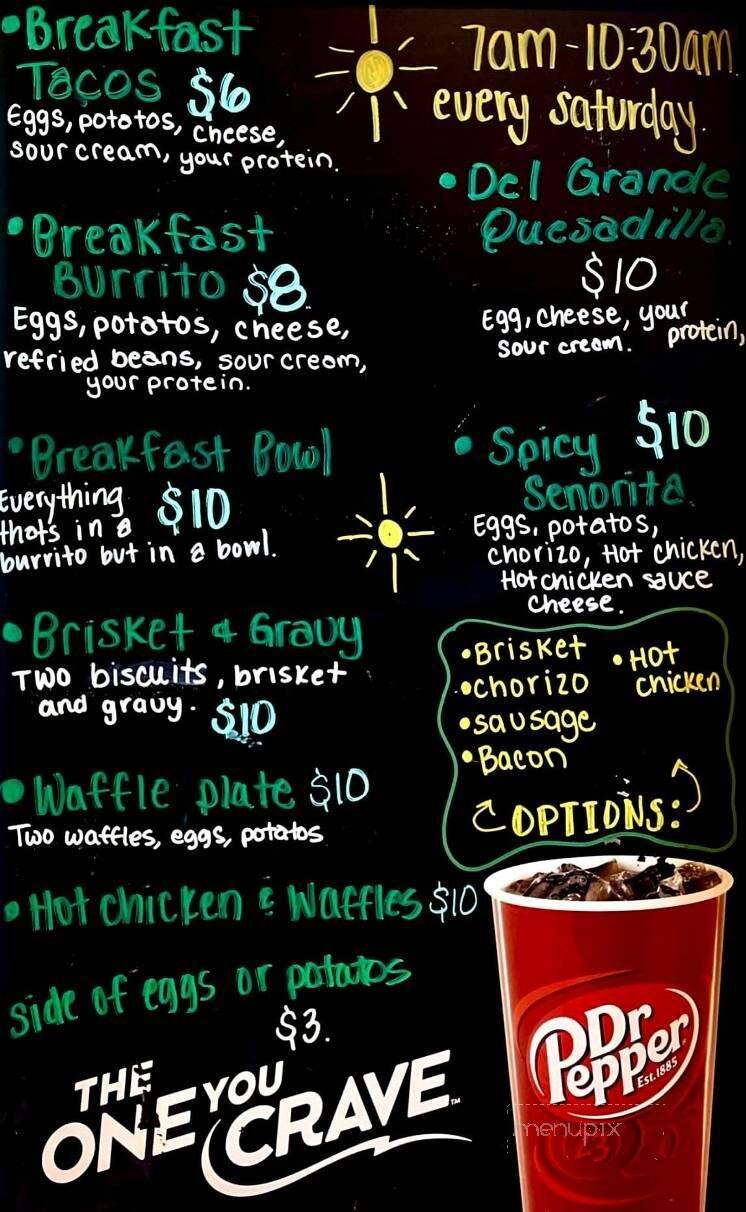 •Breakfast
Tacos $6
Eggs, potatos, cheese,
sour cream, your protein.
•Breakfast
Burrito $8
Eggs, potatos, cheese,
refried beans, sour cream,
your protein.
•Breakfast Bowl
$10
Everything
thats in a
burrito but in a bowl.
•Brisket & Gravy
Two biscuits, brisket
and gravy. $10
•Waffle plate $10
Two waffles, eggs, potatos
•Hot chicken & Waffles $10
Side of eggs or potatos
$3.
THE
ONE YOU
CRAVE™
7am-10:30am
every saturday.
•Del Grande
Quesadilla.
$10
Egg, cheese, your protein,
sour cream.
•Spicy $10
Senorita
Eggs, potatos,
chorizo, Hot chicken,
Hot chicken sauce
cheese.
•Brisket
•chorizo
•sausage
•Bacon
•HOT
chicken
OPTIONS:
Dr
Pepper
Est.1885
menupix
23